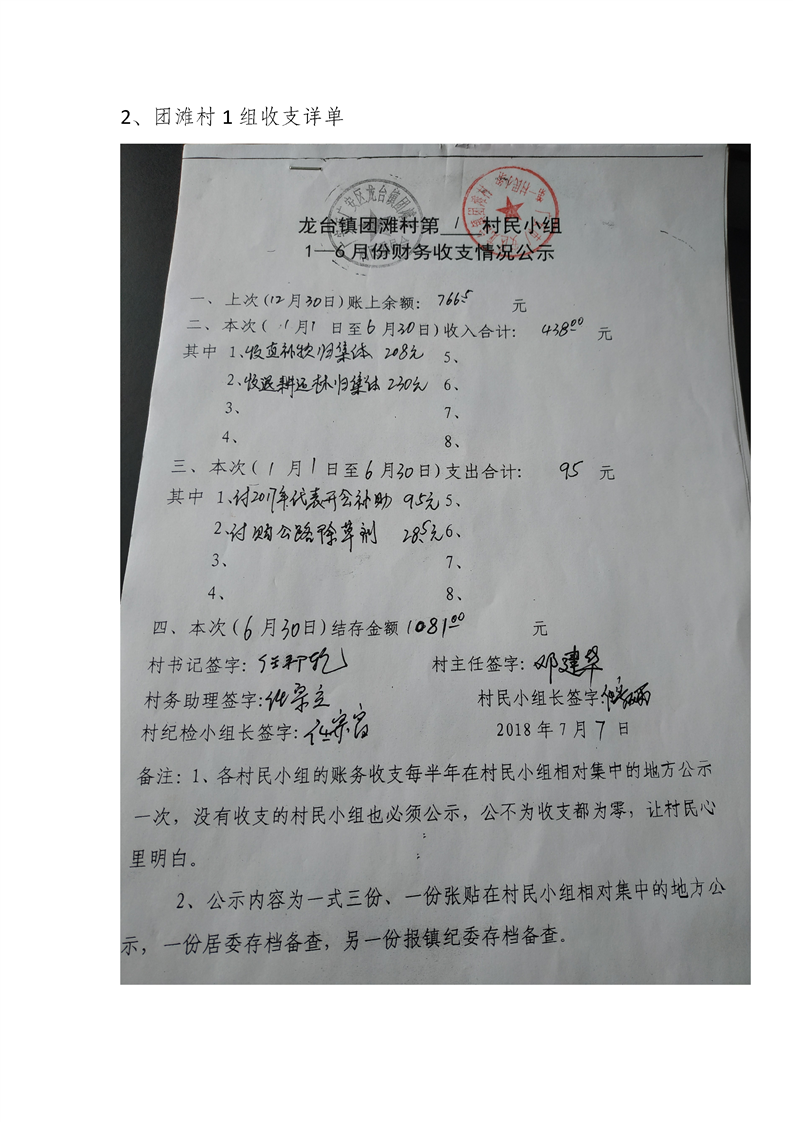 2、团滩村 1 组收支详单
龙台镇团滩村第 1 村民小组
1—6月份财务收支情况公示
一、上次(12月30日)账上余额: 766.5 元
二、本次( 1月1 日至6月30日)收入合计: 438.00 元
其中 1、收直补款归集体 208元 5、
2、收退耕还林归集体 230元 6、
3、 7、
4、 8、
三、本次( 1 月1日至6月30日)支出合计: 95 元
其中 1、付2017年代表开会补助 95元 5、
2、付购公路除草剂 28.5元 6、
3、 7、
4、 8、
四、本次(6月30日)结存金额 1081.00 元
村书记签字: 村主任签字: 邓建华
村务助理签字: 任宗立 村民小组长签字:
村纪检小组长签字: 2018年7月7日
备注:1、各村民小组的账务收支每半年在村民小组相对集中的地方公示
一次,没有收支的村民小组也必须公示,公不为收支都为零,让村民心
里明白。
2、公示内容为一式三份、一份张贴在村民小组相对集中的地方公
示,一份居委存档备查,另一份报镇纪委存档备查。